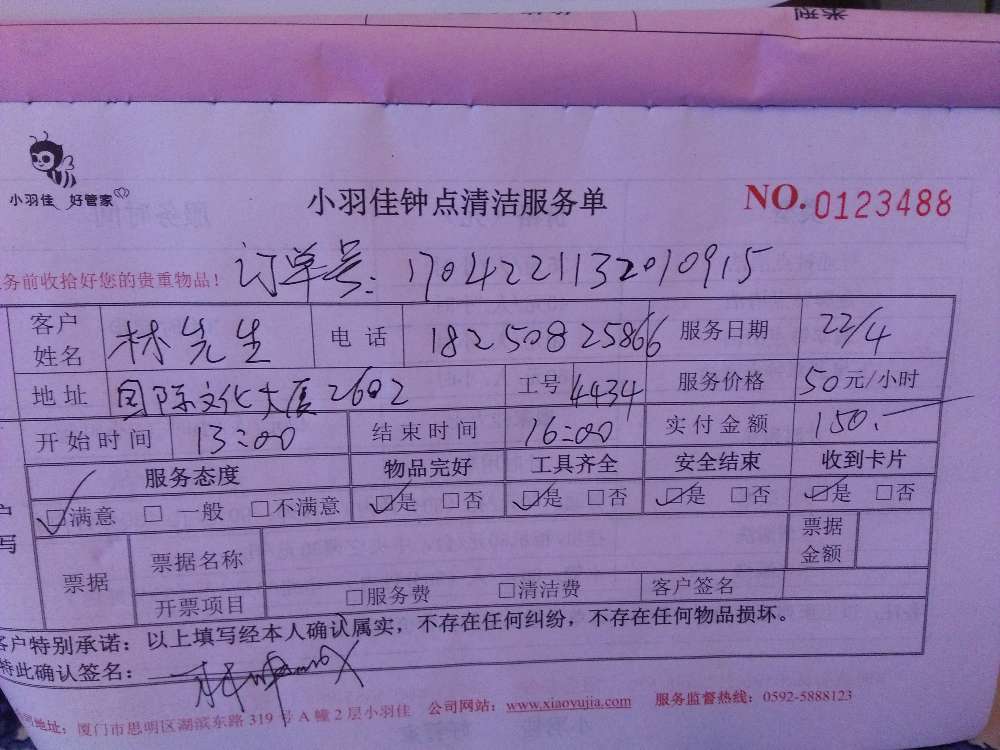 类别
小羽佳 好管家
小羽佳钟点清洁服务单
NO.0123488
务前收拾好您的贵重物品！
订单号: 1704221132010915
客户姓名 林先生 电话 18250825866 服务日期 22/4
地址 国际文化大厦2602 工号 4434 服务价格 50元/小时
开始时间 13:00 结束时间 16:00 实付金额 150.
服务态度 物品完好 工具齐全 安全结束 收到卡片
☑满意 □一般 □不满意 ☑是 □否 ☑是 □否 ☑是 □否 ☑是 □否
票据 票据名称 票据金额
开票项目 □服务费 □清洁费 客户签名
客户特别承诺：以上填写经本人确认属实，不存在任何纠纷，不存在任何物品损坏。
特此确认签名：
地址：厦门市思明区湖滨东路319号A幢2层小羽佳 公司网站：www.xiaoyujia.com 服务监督热线：0592-5888123